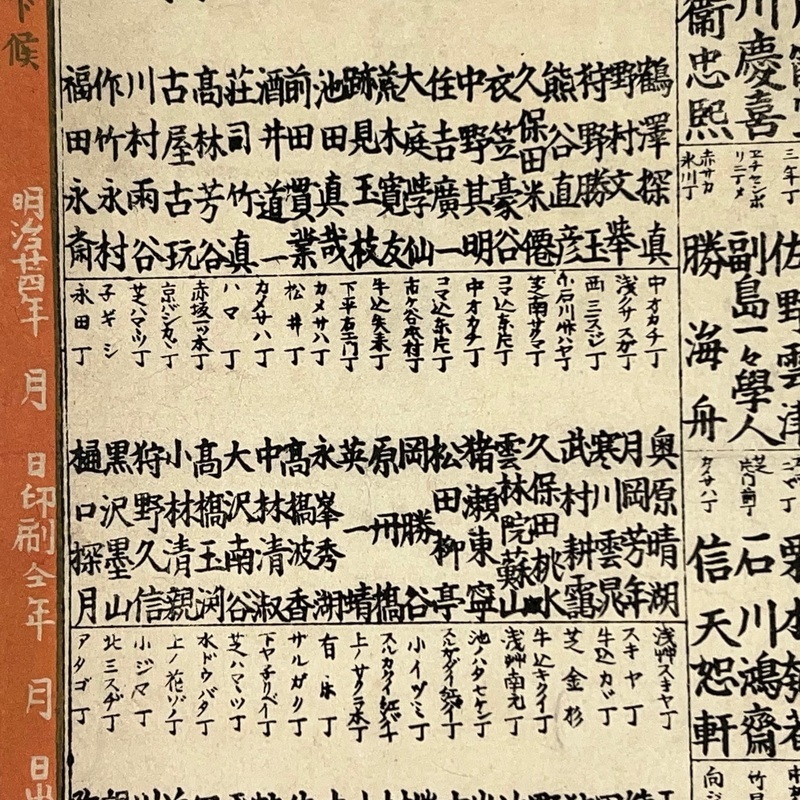 川慶喜
衞忠熙
三年丁
赤サカ氷川丁
佐野雲津
副島一々學人
勝海舟
石川鴻齋
信天恕軒
鶴澤探真
野村文挙
狩野勝玉
熊谷直彦
久保田米僊
衣笠豪谷
中野其明
任吉廣一
大庭學仙
荒木寛友
跡見玉枝
池田真哉
前田貫業
酒井道一
荘司竹真
髙林芳谷
古屋古玩
川村雨谷
作竹永村
福田永斎
中オカチ丁
浅クサスガ丁
西三スジ丁
芝南サクマ丁
コマ込东片丁
中オカチ丁
コマ込东片丁
市ケ谷本村丁
牛込矢来丁
下平右エ門丁
カメサハ丁
松井丁
カメサハ丁
ハマ丁
赤坂一ツ木丁
芝ハマツ丁
子ギシ
永田丁
奥原晴湖
月岡芳年
寒川雲晁
武村耕靄
久保田桃水
雲林院蘇山
猪瀬東寧
松田柳亭
岡勝谷
原丹橋
英一蜻
永峯秀湖
髙橋波香
中林清淑
大沢南谷
髙橋玉渕
小林清親
狩野久信
黒沢墨山
樋口探月
浅艸スキヤ丁
スキヤ丁
牛込カヾ丁
芝金杉
牛込キクイ丁
浅艸南元丁
池ノハタセケン丁
スルガダイ紅バイ丁
小イヅミ丁
スルガダイ紅バイ丁
上ノサクラ木丁
有楽丁
サルガク丁
下ヤチリベイ丁
芝ハマツ丁
水ドウバタ丁
上ノ花ゾノ丁
小ジマ丁
北三スヂ丁
アタゴ丁
下候
明治廿四年 月 日印刷仝年 月 日出